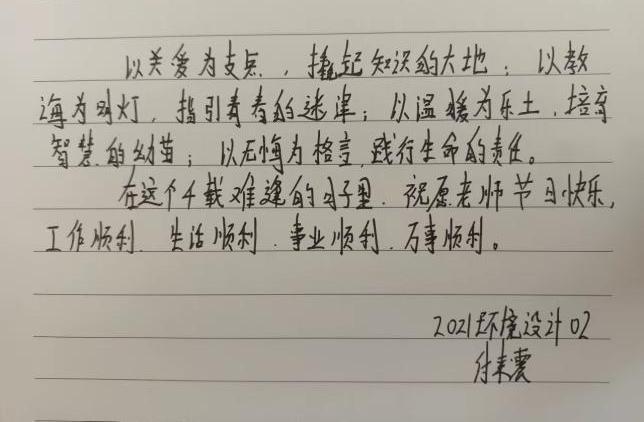 以关爱为支点，撬起知识的大地；以教
诲为明灯，指引青春的迷津；以温暖为乐土，培育
智慧的幼苗；以无悔为格言，践行生命的责任。
在这个千载难逢的日子里，祝愿老师节日快乐，
工作顺利、生活顺利、事业顺利、万事顺利。
2021环境设计02
付来震